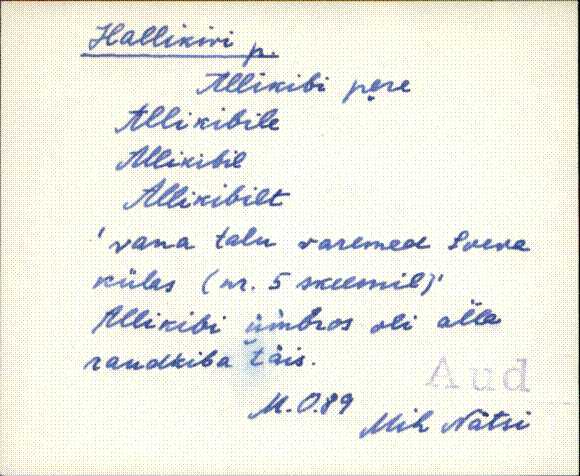 Hallikivi p.
Allikibi pere
Allikibile
Allikibil
Allikibilt
' vana talu varemed Soeva
külas (nr. 5 skeemil)'
Allikibi ümbros oli alle
raudkiba täis.
Aud
M. O. 89
Mih Nätsi